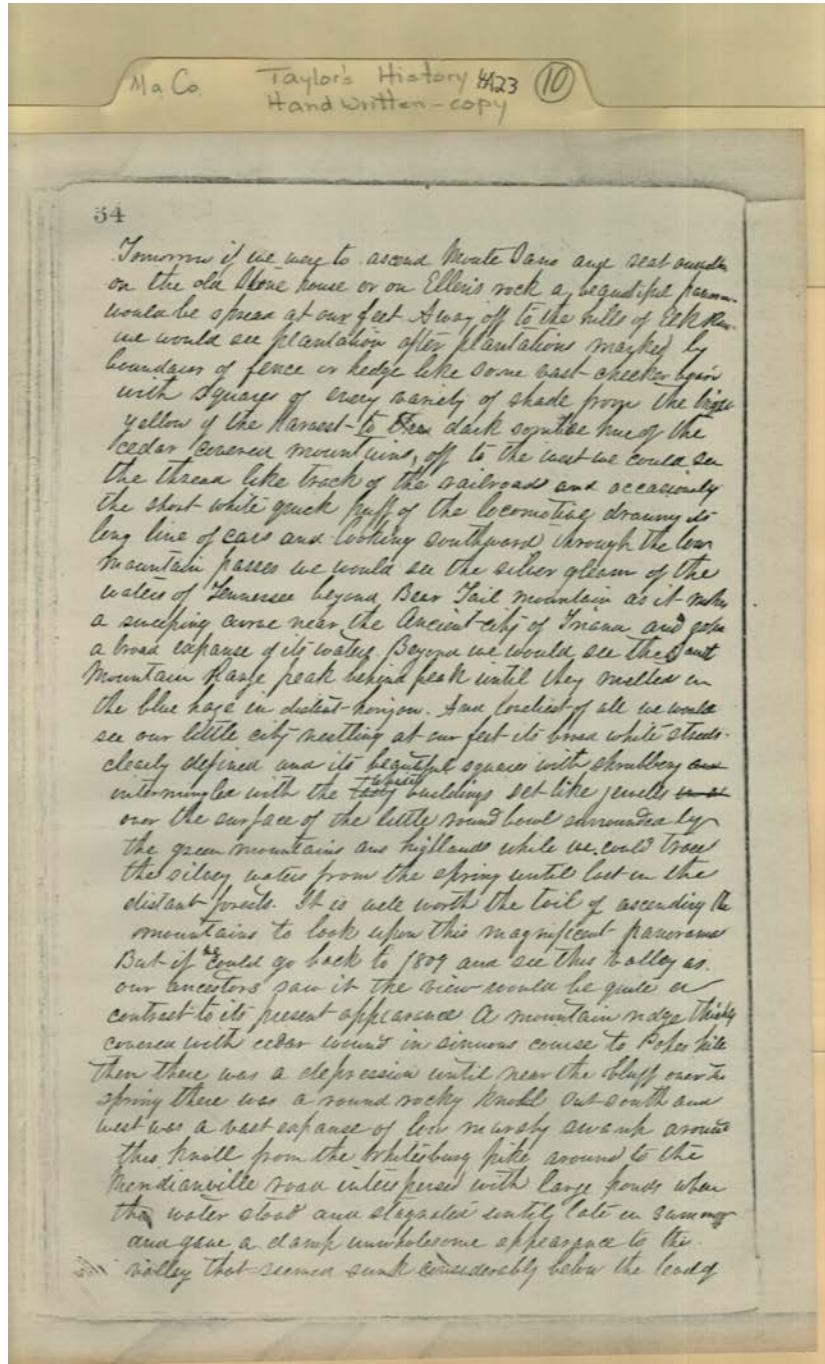 Ma Co. Taylor's History 4A23 10
Hand written - copy
54
Tomorrow if we were to ascend Monte Sano and seat ourselves
on the old Stone house or on Ellen's rock a beautiful panora-
would be spread at our feet Away off to the hills of Elk Riv-
we would see plantation after plantations marked by
boundaries of fence or hedge like some vast checker board
with squares of every variety of shade from the bright
yellow of the harvest to the dark sombre hue of the
cedar covered mountains, off to the west we could see
the thread like track of the railroads and occasionly
the short white quick puff of the locomotive drawing its
long line of cars and looking southward through the low
mountain passes we would see the silver gleam of the
waters of Tennessee beyond Bear Tail mountain as it makes
a sweeping curve near the Ancient city of Triana and
a broad expanse of its waters Beyond we would see the Sand
Mountain Range peak behind peak until they melted in
the blue haze in distant horizon. And loveliest of all we would
see our little city nestling at our feet its broad white streets
clearly defined and its beautiful squares with shrubbery and
intermingled with the tasty buildings set like jewels
over the surface of the little round bowl surrounded by
the green mountains and highlands while we could trace
the silvery waters from the spring until lost in the
distant forests. It is well worth the toil of ascending the
mountains to look upon this magnificent panorama
But if we could go back to 1809 and see this valley as
our ancestors saw it the view would be quite a
contrast to its present appearance A mountain ridge thickly
covered with cedar wound in sinuous course to Pokes hill
then there was a depression until near the bluff over the
spring there was a round rocky knoll but south and
west was a vast expanse of low marshy swamp around
this knoll from the Whitesburg pike around to the
Meridianville road interspersed with large ponds when
the water stood and stagnated until late in summer
and gave a damp unwholesome appearance to the
valley that seemed sunk considerably below the level of